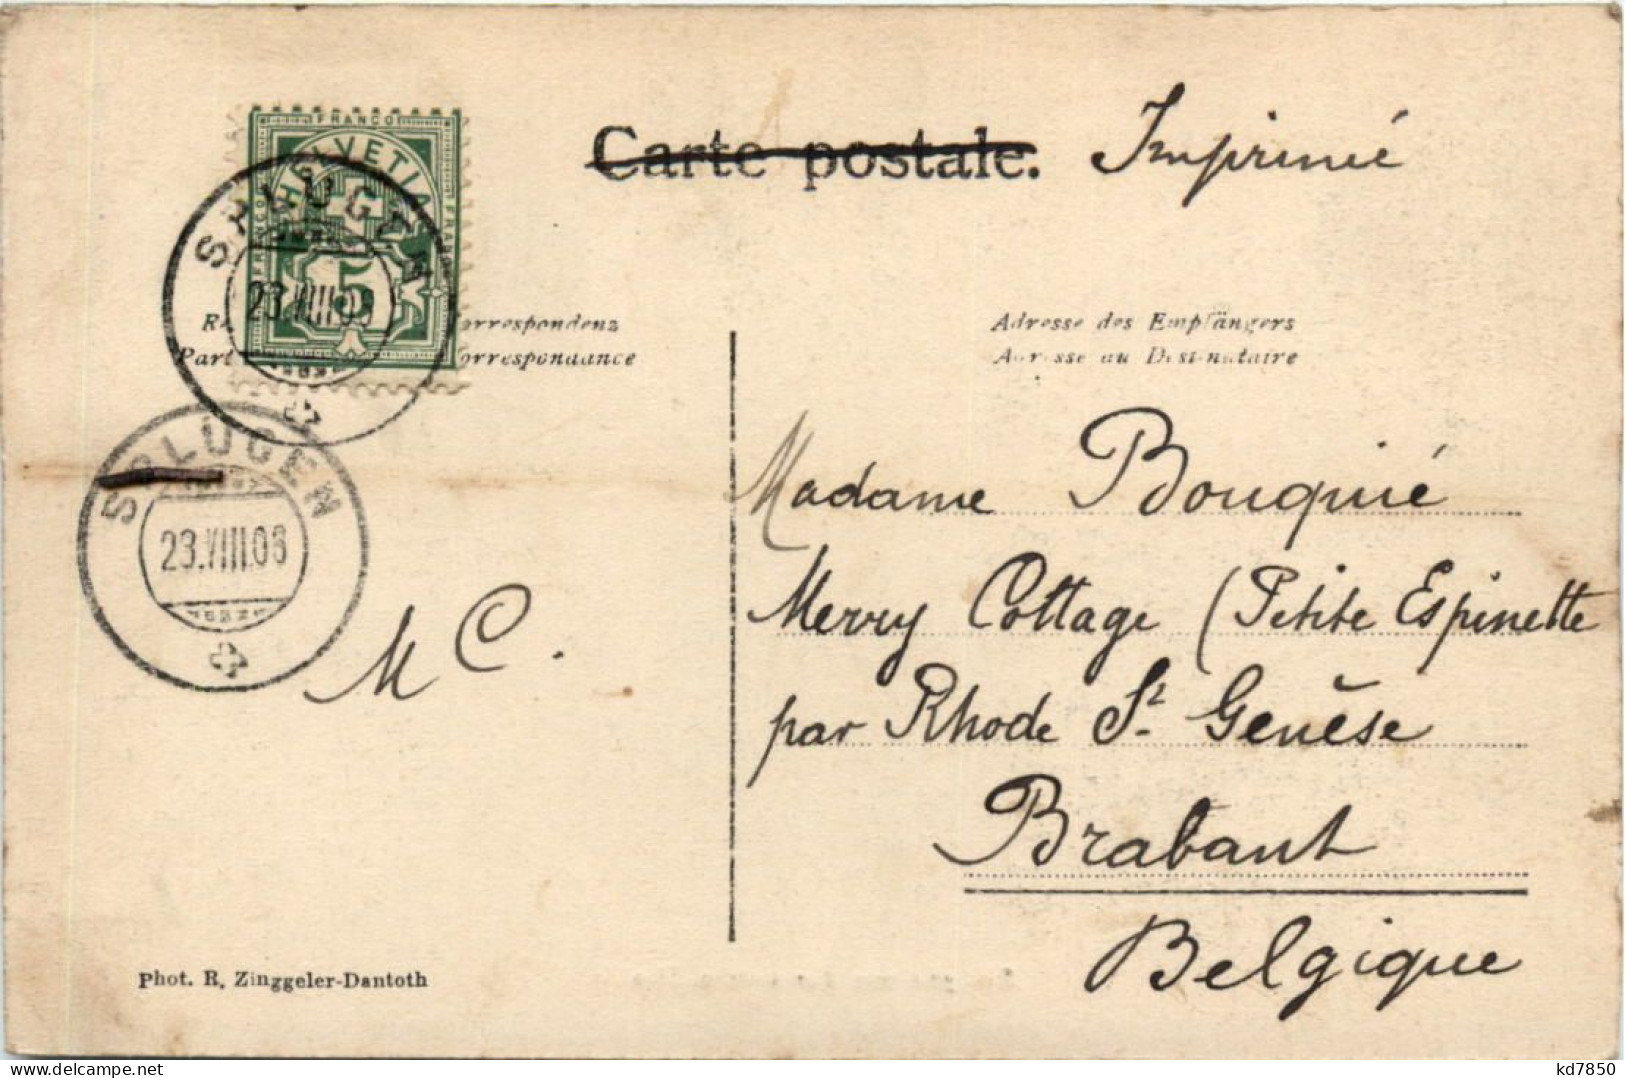 Carte postale. Imprimé
FRANCO
HELVETIA
FRANCO
5
SPLÜGEN
23.VIII.06
Correspondenz
Correspondance
Adresse des Empfängers
Adresse au Destinataire
SPLÜGEN
23.VIII.06
M C.
Madame Bouquié
Merry Cottage (Petite Espinette
par Rhode St. Genèse
Brabant
Belgique
Phot. R. Zinggeler-Dantoth
delcampe.net
kd7850